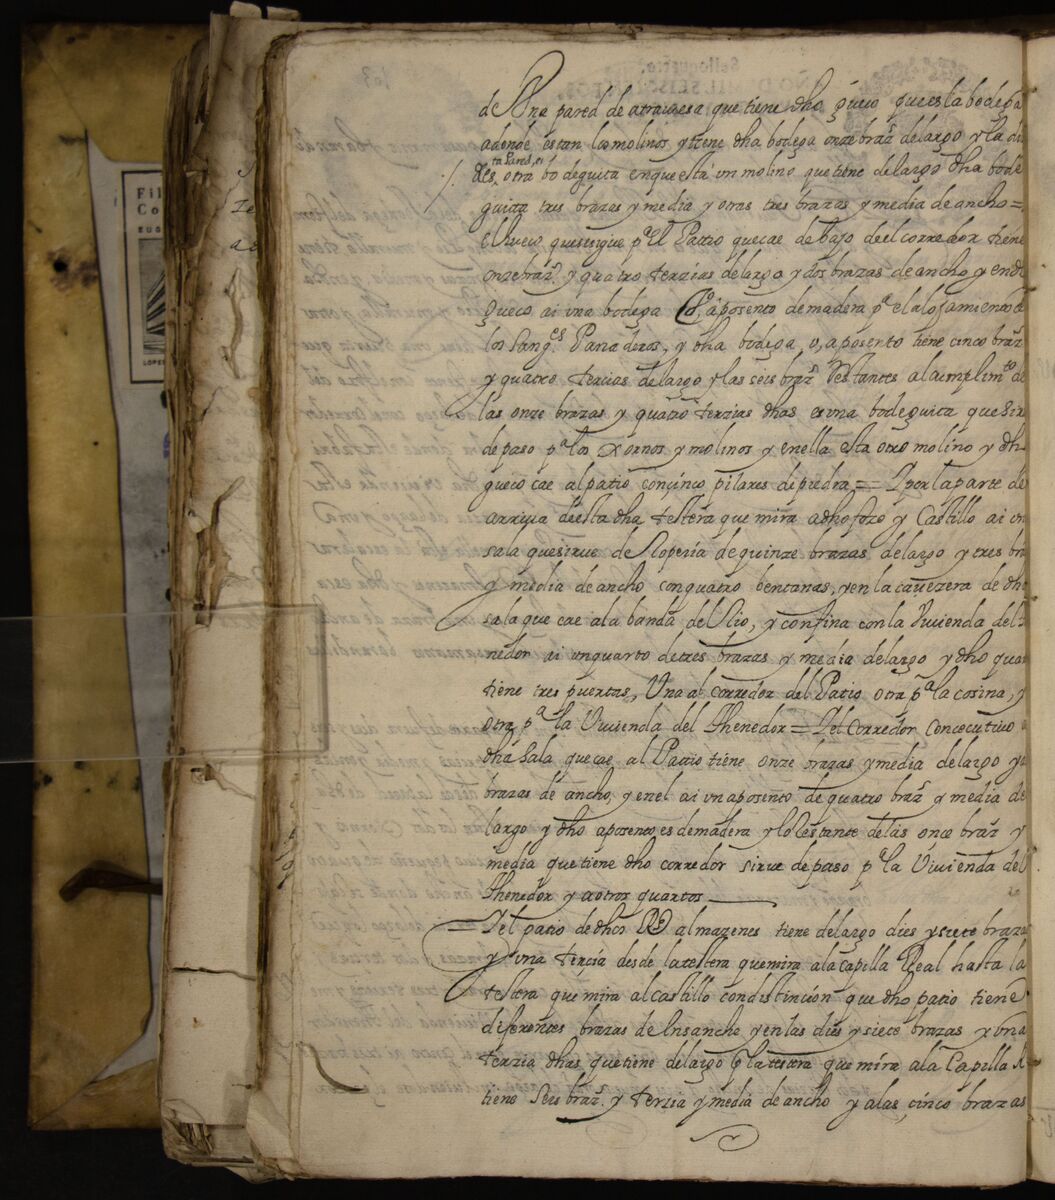 de Una pared de atrauiesa que tiene dho gueco que es la bodega
adonde estan los molinos y tiene dha bodega onze braz.s de largo y la di
ta Pared, ai
des otra bodeguita en que está un molino que tiene de largo dha bode
guita tres brazas y media y otras tres brazas y media de ancho =
el hueco que sigue p.a el Patio que cae debajo de el corredor tiene
onze braz.s y quatro terzias de largo y dos brazas de ancho y en dho
gueco ai una bodega o, aposento de madera p.a el alojamiento de
los Sang.es Panaderos, y dha bodega, o, aposento tiene cinco braz.s
y quatro tercias de largo y las seis braz.s Restantes al cumplim.to de
las onze brazas y quatro terzias dhas es una bodeguita que Sir
de paso p.a los xornos y molinos y en ella esta otro molino y dh
gueco cae al patio con cinco pilares de piedra = I por la parte de
arriua de esta dha testera que mira a dho foso y Castillo ai un
sala que sirue de Roperia de quinze brazas de largo y tres bra
y media de ancho con quatro bentanas, y en la cauezera de dha
sala que cae a la banda del Rio, y confina con la Viuienda del
nedor ai un quarto de tres brazas y media de largo y dho quar
tiene tres puertas, Una al corredor del Patio otra p.a la cosina, y
otra p.a la Viuienda del Thenedor = I el Corredor Concecutiuo a
dha Sala que cae al Patio tiene onze brazas y media de largo y
brazas de ancho, y en el ai un aposento de quatro braz.s y media de
largo y dho aposento es de madera y lo Restante de las once braz.s y
media que tiene dho corredor sirue de paso p.a la Viuienda del
Thenedor y a otros quartos
= I el patio de dhos R.s almazenes tiene de largo dies y siete brazas
y una tercia desde la testera que mira a la capilla Real hasta la
testera que mira al castillo con distincion que dho patio tiene
diferentes brazas de Ensanche y en las dies y siete brazas y una
terzia dhas que tiene de largo p.r la testera que mira a la Capilla R
tiene Seis braz.s y terzia y media de ancho y a las, cinco brazas